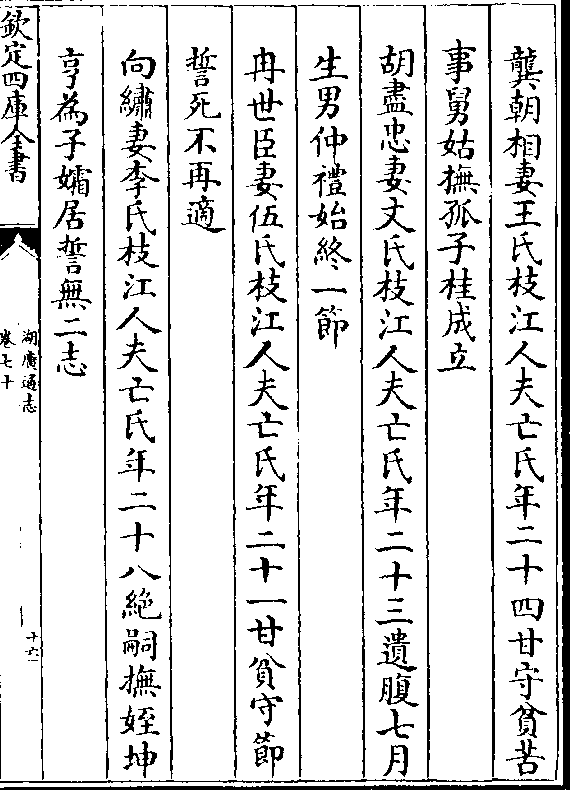 龔朝相妻王氏枝江人夫亡氏年二十四甘守貧苦
事舅姑撫孤子桂成立
胡盡忠妻文氏枝江人夫亡氏年二十三遺腹七月
生男仲禮始終一節
冉世臣妻伍氏枝江人夫亡氏年二十一甘貧守節
誓死不再適
向繡妻李氏枝江人夫亡氏年二十八絶嗣撫姪坤
亨為子孀居誓無二志
欽定四庫全書
湖廣通志
卷七十
十六